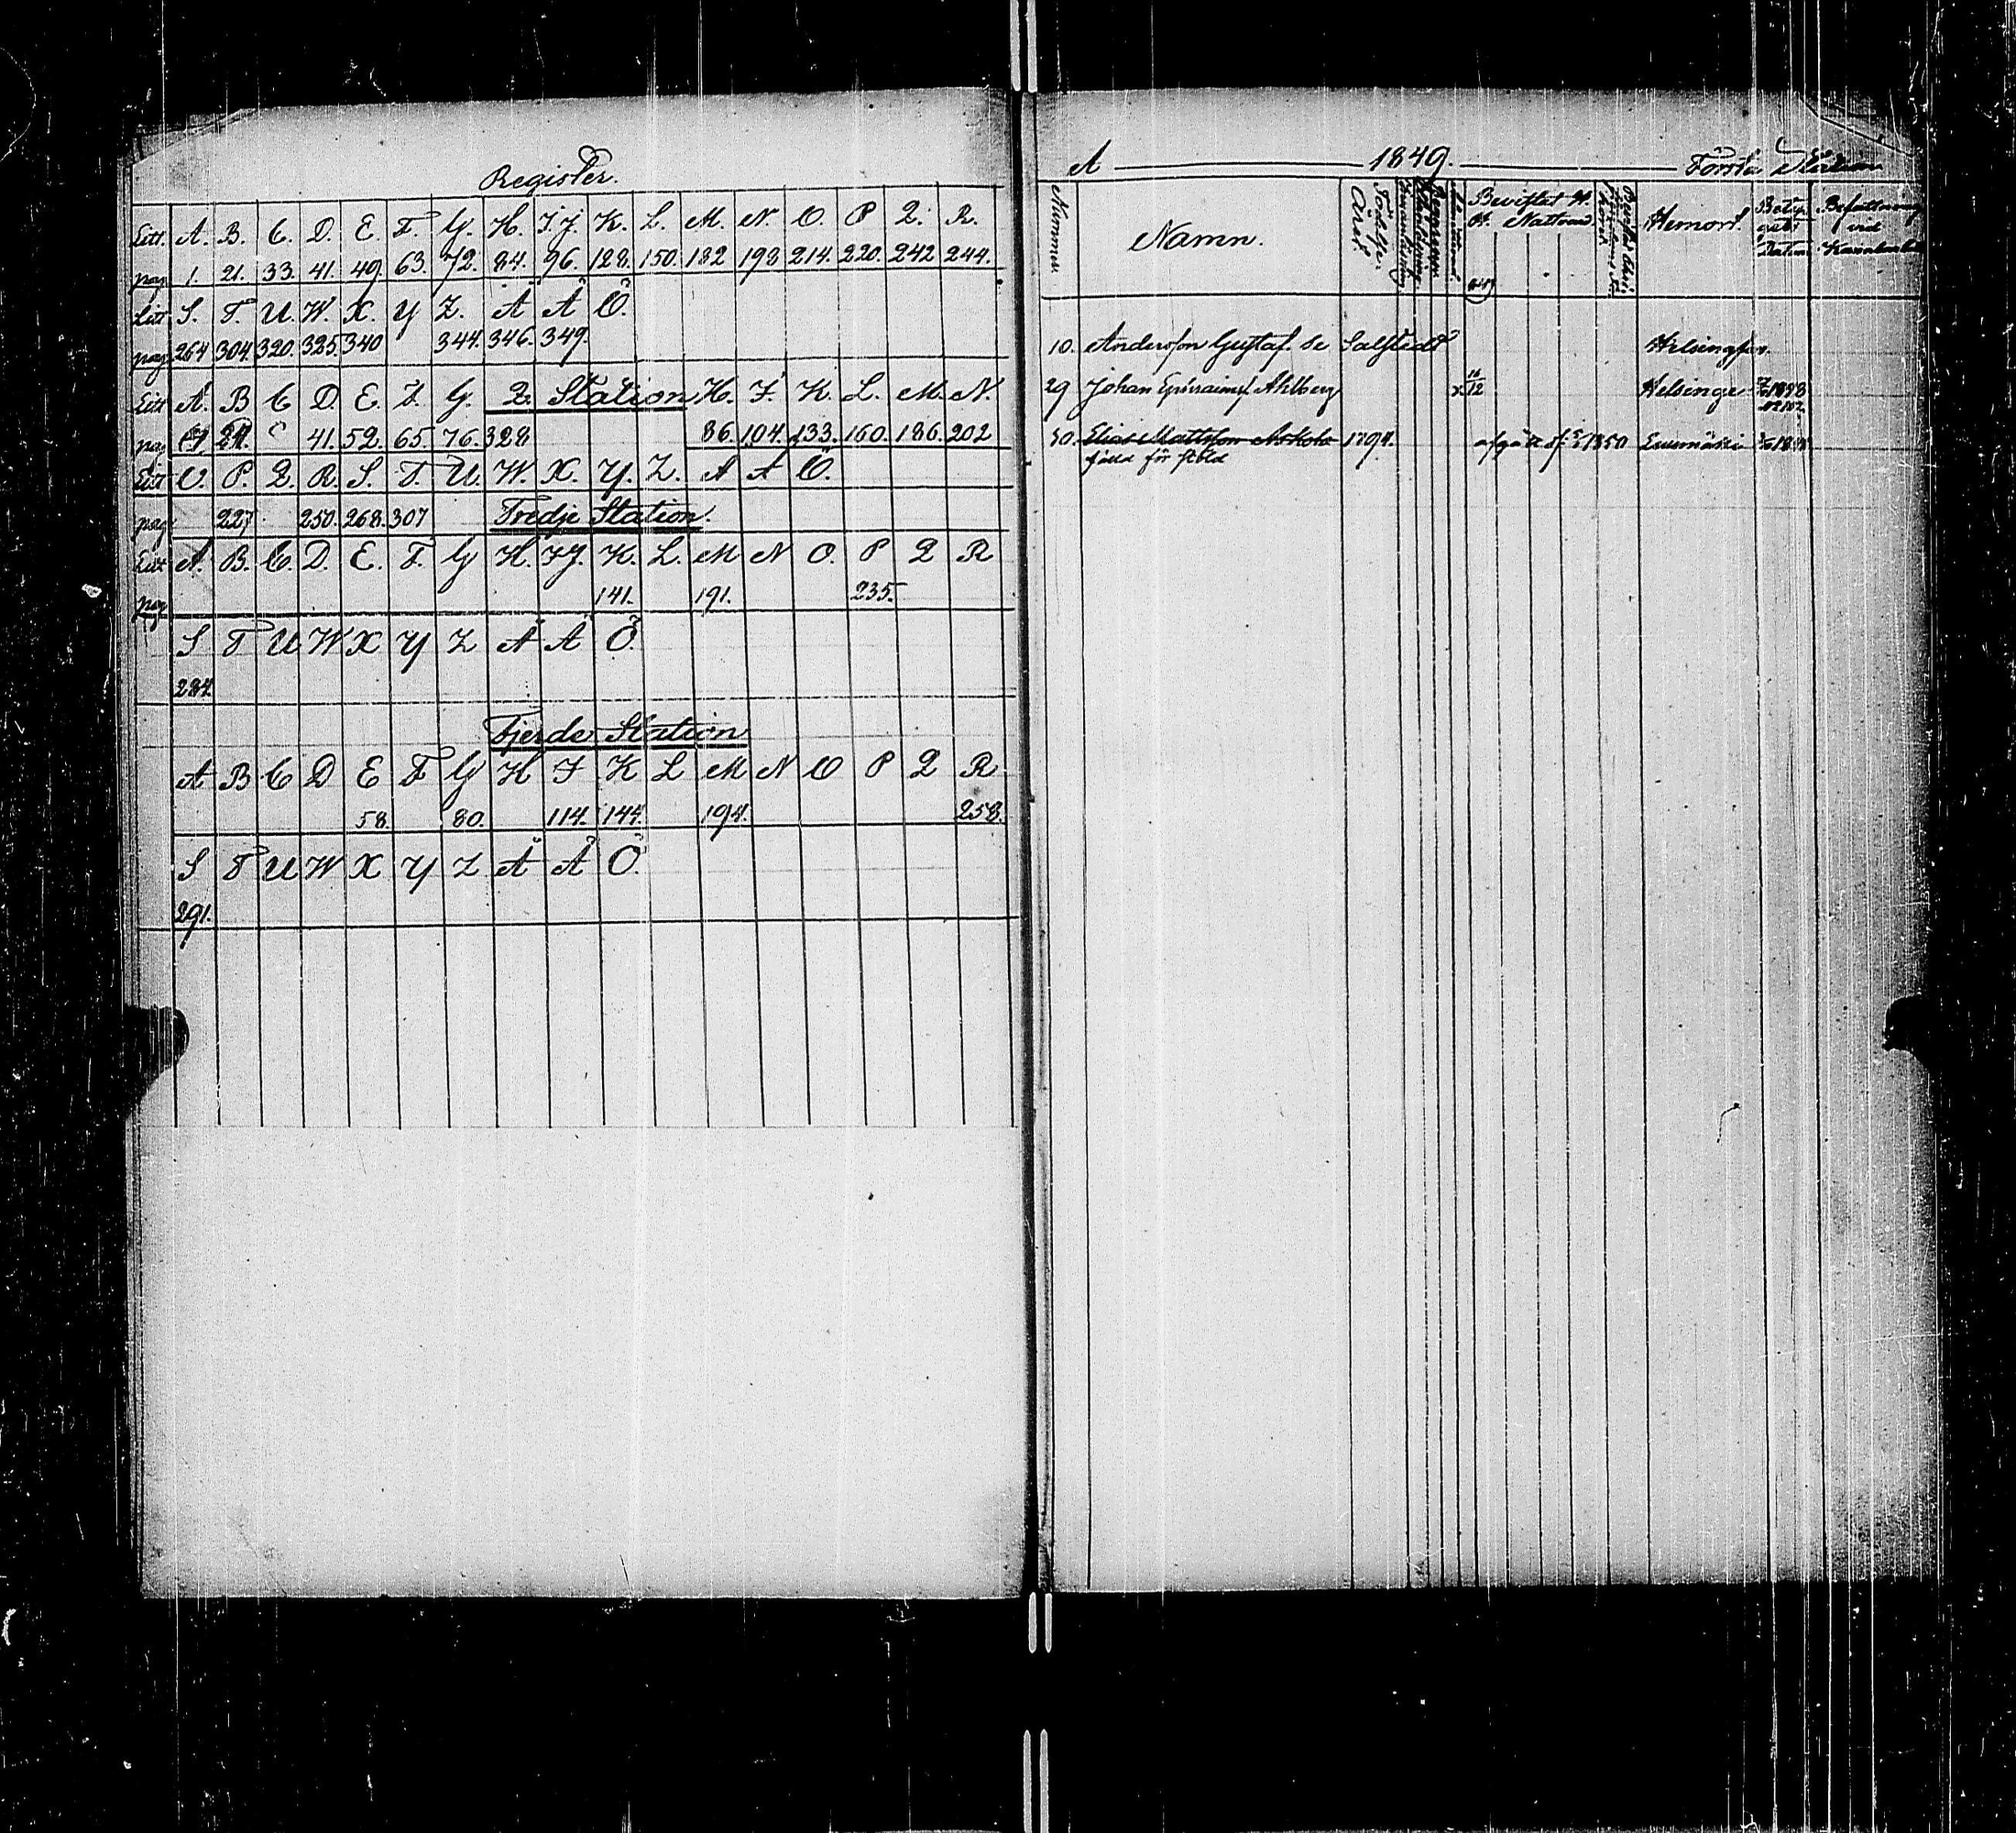 Register.
Litt. A. B. C. D. E. F. G. H. I.J. K. L. M. N. O. P Q. R.
pag. 1. 21. 33. 41. 49. 63. 72. 84. 96. 128. 150. 182 198 214. 220. 242 244.
Litt S. T. U. W. X. Y Z. Ä Å Ö.
pag. 264 304. 320. 325. 340 344. 346. 349.
Litt A. B C D. E. F. G. 2. Station H. I. K. L. M. N.
pag 41. 52. 65. 76. 328 86. 104. 133. 160. 186. 202
Litt O. P. Q. R. S. T. U. W. X. Y. Z. A A Ö.
pag 227 250. 268. 307 Tredje Station.
Litt A. B. C. D. E. F. G H. I J. K. L. M N O. P Q R
pag 141. 191. 235.
S T U W X Y Z Ä Å Ö.
284.
Fjerde Station
A B C D E F G H I K L M N O P Q R
58. 80. 114. 144. 194. 258.
S T U W X Y Z Ä Å Ö.
291.
A 1849. Första Station
Nummer. Namn. Födelse- Året Bevistat H. H. Nattvard. Hemort. Bety- gets Datum Befattning vid
10. Andersson Gustaf. se Salstedt Helsingfors.
29 Johan Ephraimss Ahlberg x. 16/12 Helsinge
30. Elias Mattsson Askola 1794. afgått 1850
fälld för stöld